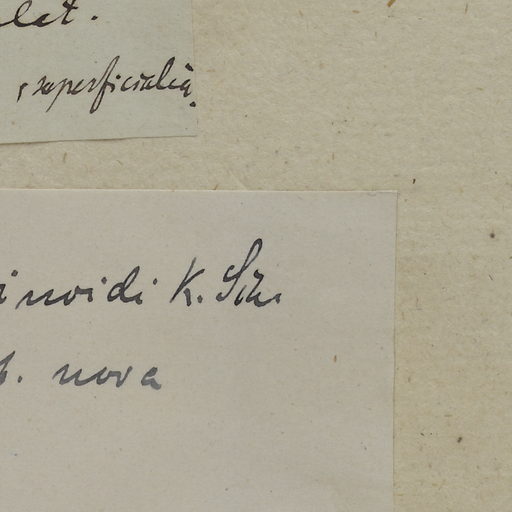 let.
superficialia.
inoidi K. Sün
b. nova